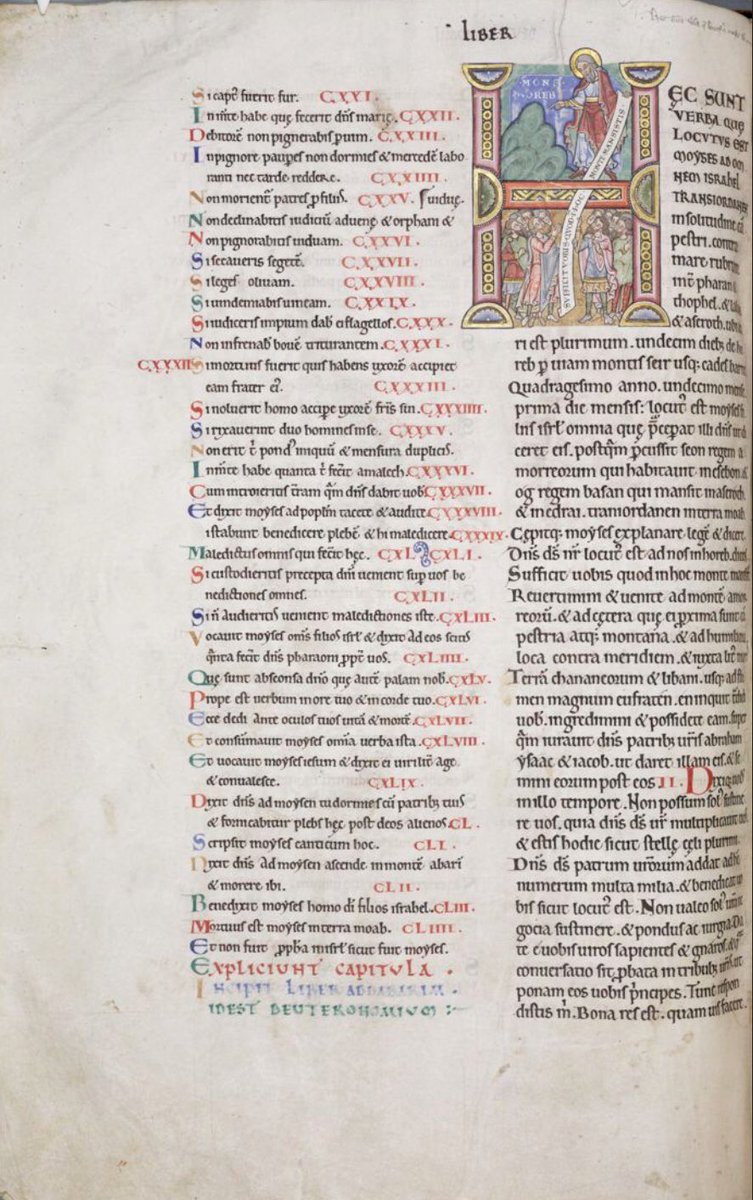 liber
Si capt fuerit fur. CXXI.
In mte habe que fecerit dns marie. CXXII.
Debitore non pignerabis puim. CXXIII.
In pignore paupes non dormies & mercede labo
ranti nec tarde reddere. CXXIIII.
Non morient patres p filiis. CXXV. viduę.
Non declinabitis iudiciu advenę & orphani &
Non pignorabitis viduam. CXXVI.
Si secaveris segete. CXXVII.
Si leges olivam. CXXVIII.
Si vindemiabis vineam. CXXIX.
Si iudiceris impium dab ei flagellos. CXXX.
Non infrenab bove triturantem. CXXXI.
CXXXII Si mortuus fuerit quis habens uxore accipiet
eam frater ei. CXXXIII.
Si noluerit homo accipe uxore fris sui. CXXXIIII.
Si rixaverint duo homines inse. CXXXV.
Non erit t pond iniquu & mensura duplicis.
In mte habe quanta t fecit amalech. CXXXVI.
Cum introieritis tram qm dns dabit vob CXXXVII.
Et dixit moyses ad poplm tacete & audite. CXXXVIII.
istabunt benedicere plebe & hi maledicere. CXXXIX.
Maledictus omnis qui fecit hęc. CXL. CXLI.
Si custodieritis precepta dni venient sup vos be
nedictiones omnes. CXLII.
Sin audieritis venient maledictiones iste. CXLIII.
Vocavit moyses oms filios isrl & dixit ad eos scitis
qnta fecit dns pharaoni ppt vos. CXLIIII.
Que sunt absconsa dno que aute palam nob. CXLV.
Prope est verbum in ore tuo & in corde tuo. CXLVI.
Ecce dedi ante oculos tuos vita & morte. CXLVII.
Et consumavit moyses omia verba ista. CXLVIII.
Et vocavit moyses iesum & dixit ei virilit age
& convalesce. CXLIX.
Dixit dns ad moysen tu dormies cu patrib tuis
& fornicabitur plebs hęc post deos alienos. CL.
Scripsit moyses canticum hoc. CLI.
Dixit dns ad moysen ascende in monte abari
& morere ibi. CLII.
Benedixit moyses homo di filios israhel. CLIII.
Mortuus est moyses in terra moab. CLIIII.
Et non fuit ppha in isrl sicut fuit moyses.
Expliciunt capitula.
Incipit liber addabarim
id est deuteronomium
SUFFICIT VOBIS QUOD IN HOC MONTE MANSISTIS
HEC SUNT
VERBA QUE
LOCUTUS EST
MOYSES AD OM
NEM ISRAHEL
TRANSIORDANE
in solitudine ca
pestri. contra
mare rubrum
int pharan &
thophel. & laban
& aseroth. ubi au
ri est plurimum. undecim dieb de ho
reb p viam montis seir usq; cades barne
Quadragesimo anno. undecimo mense.
prima die mensis: locut est moyses fi
lios isrl omnia que pceperat illi dns ut di
ceret eis. postqm percussit seon regem a
morreorum qui habitavit in esebon. &
og regem basan qui mansit in aseroth.
& in edrai. trans iordanen in terra moab.
Cepitq; moyses explanare lege & dicere.
Dns ds nr locut est ad nos in horeb. dicens
Sufficit vobis quod in hoc monte mansistis
Revertimini & venite ad monte amor
reoru. & ad cetera que ei pxima sunt ca
pestria atq; montana. & ad humiliora
loca contra meridiem. & iuxta litt mar
Terra chananeorum & libani. usq; ad flu
men magnum eufraten. en inquit tradi
vob. ingredimini & possidete eam. super
qm iuravit dns patrib vris abraham
ysaac & iacob. ut daret illam eis. & se
mini eorum post eos II. Dixiq; vob
in illo tempore. Non possum sol sustine
re vos. quia dns ds vr multiplicavit vos
& estis hodie sicut stelle celi plurimi.
Dns ds patrum vrorum addat ad hc
numerum multa milia. & benedicat vo
bis sicut locut est. Non valeo sol vra ne
gocia sustinere. & pondus ac iurgia. Da
te e vobis viros sapientes & gnaros. & quor
conversatio sit pbata in tribub vris. ut
ponam eos vobis principes. Tunc respon
distis m. Bona res est. quam vis facere.